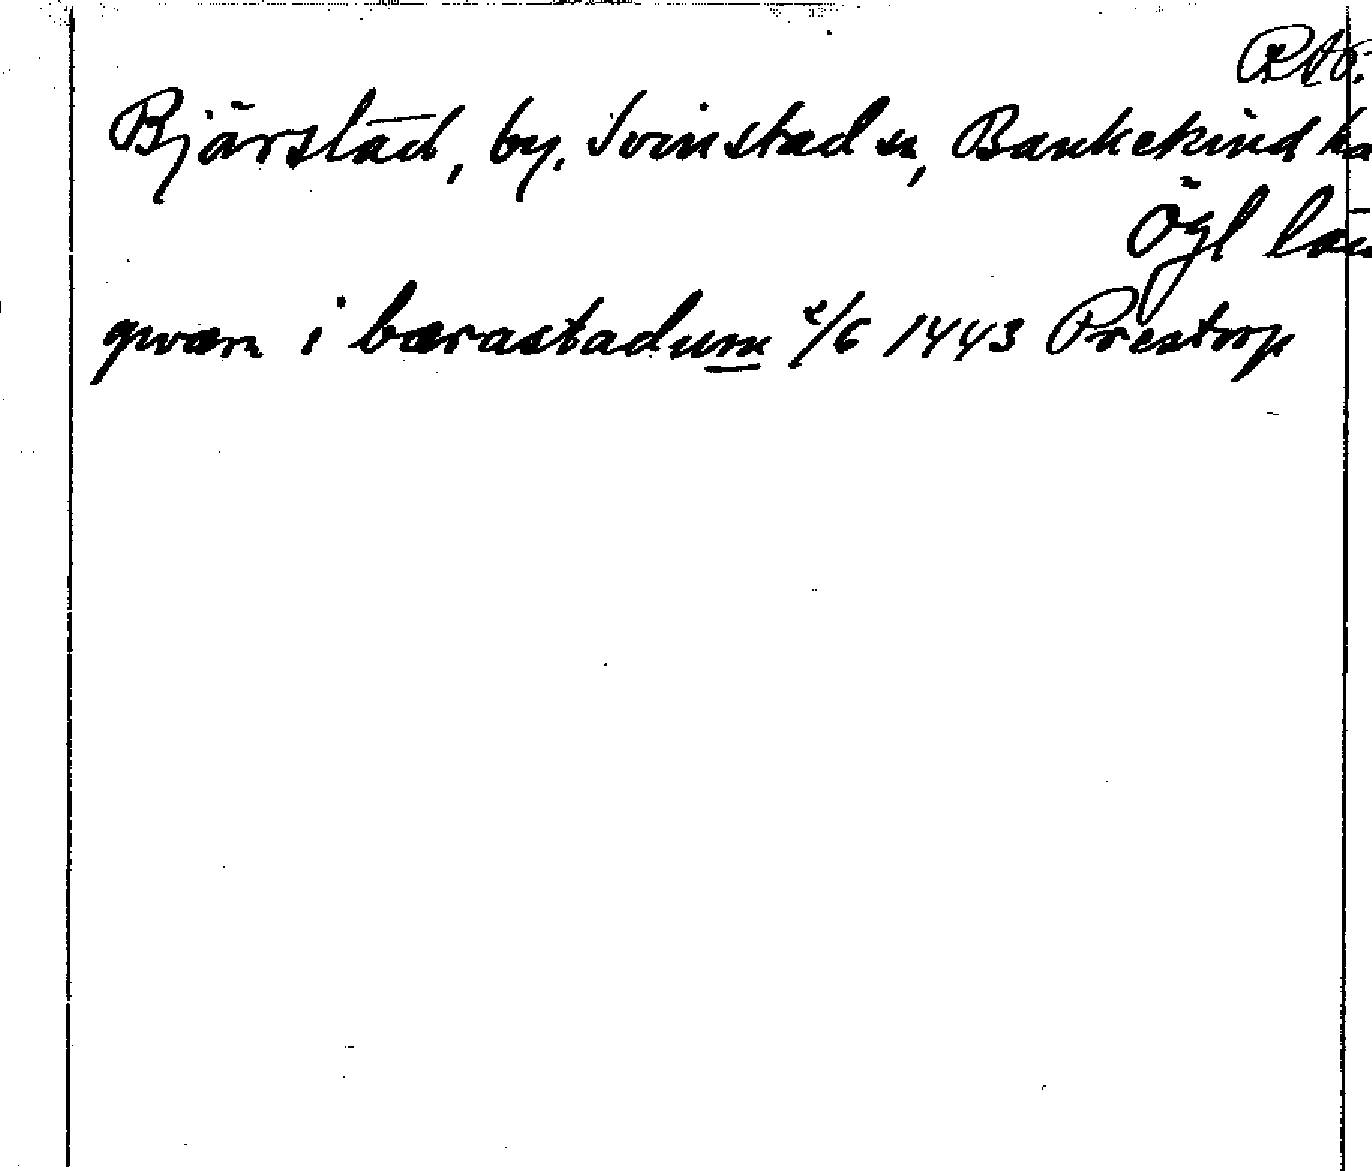 RAp.
Bjärstad, by, Svinstad sn, Bankekind hd
Ögl län
qwærn i bærastadum 2/6 1443 Prestorp